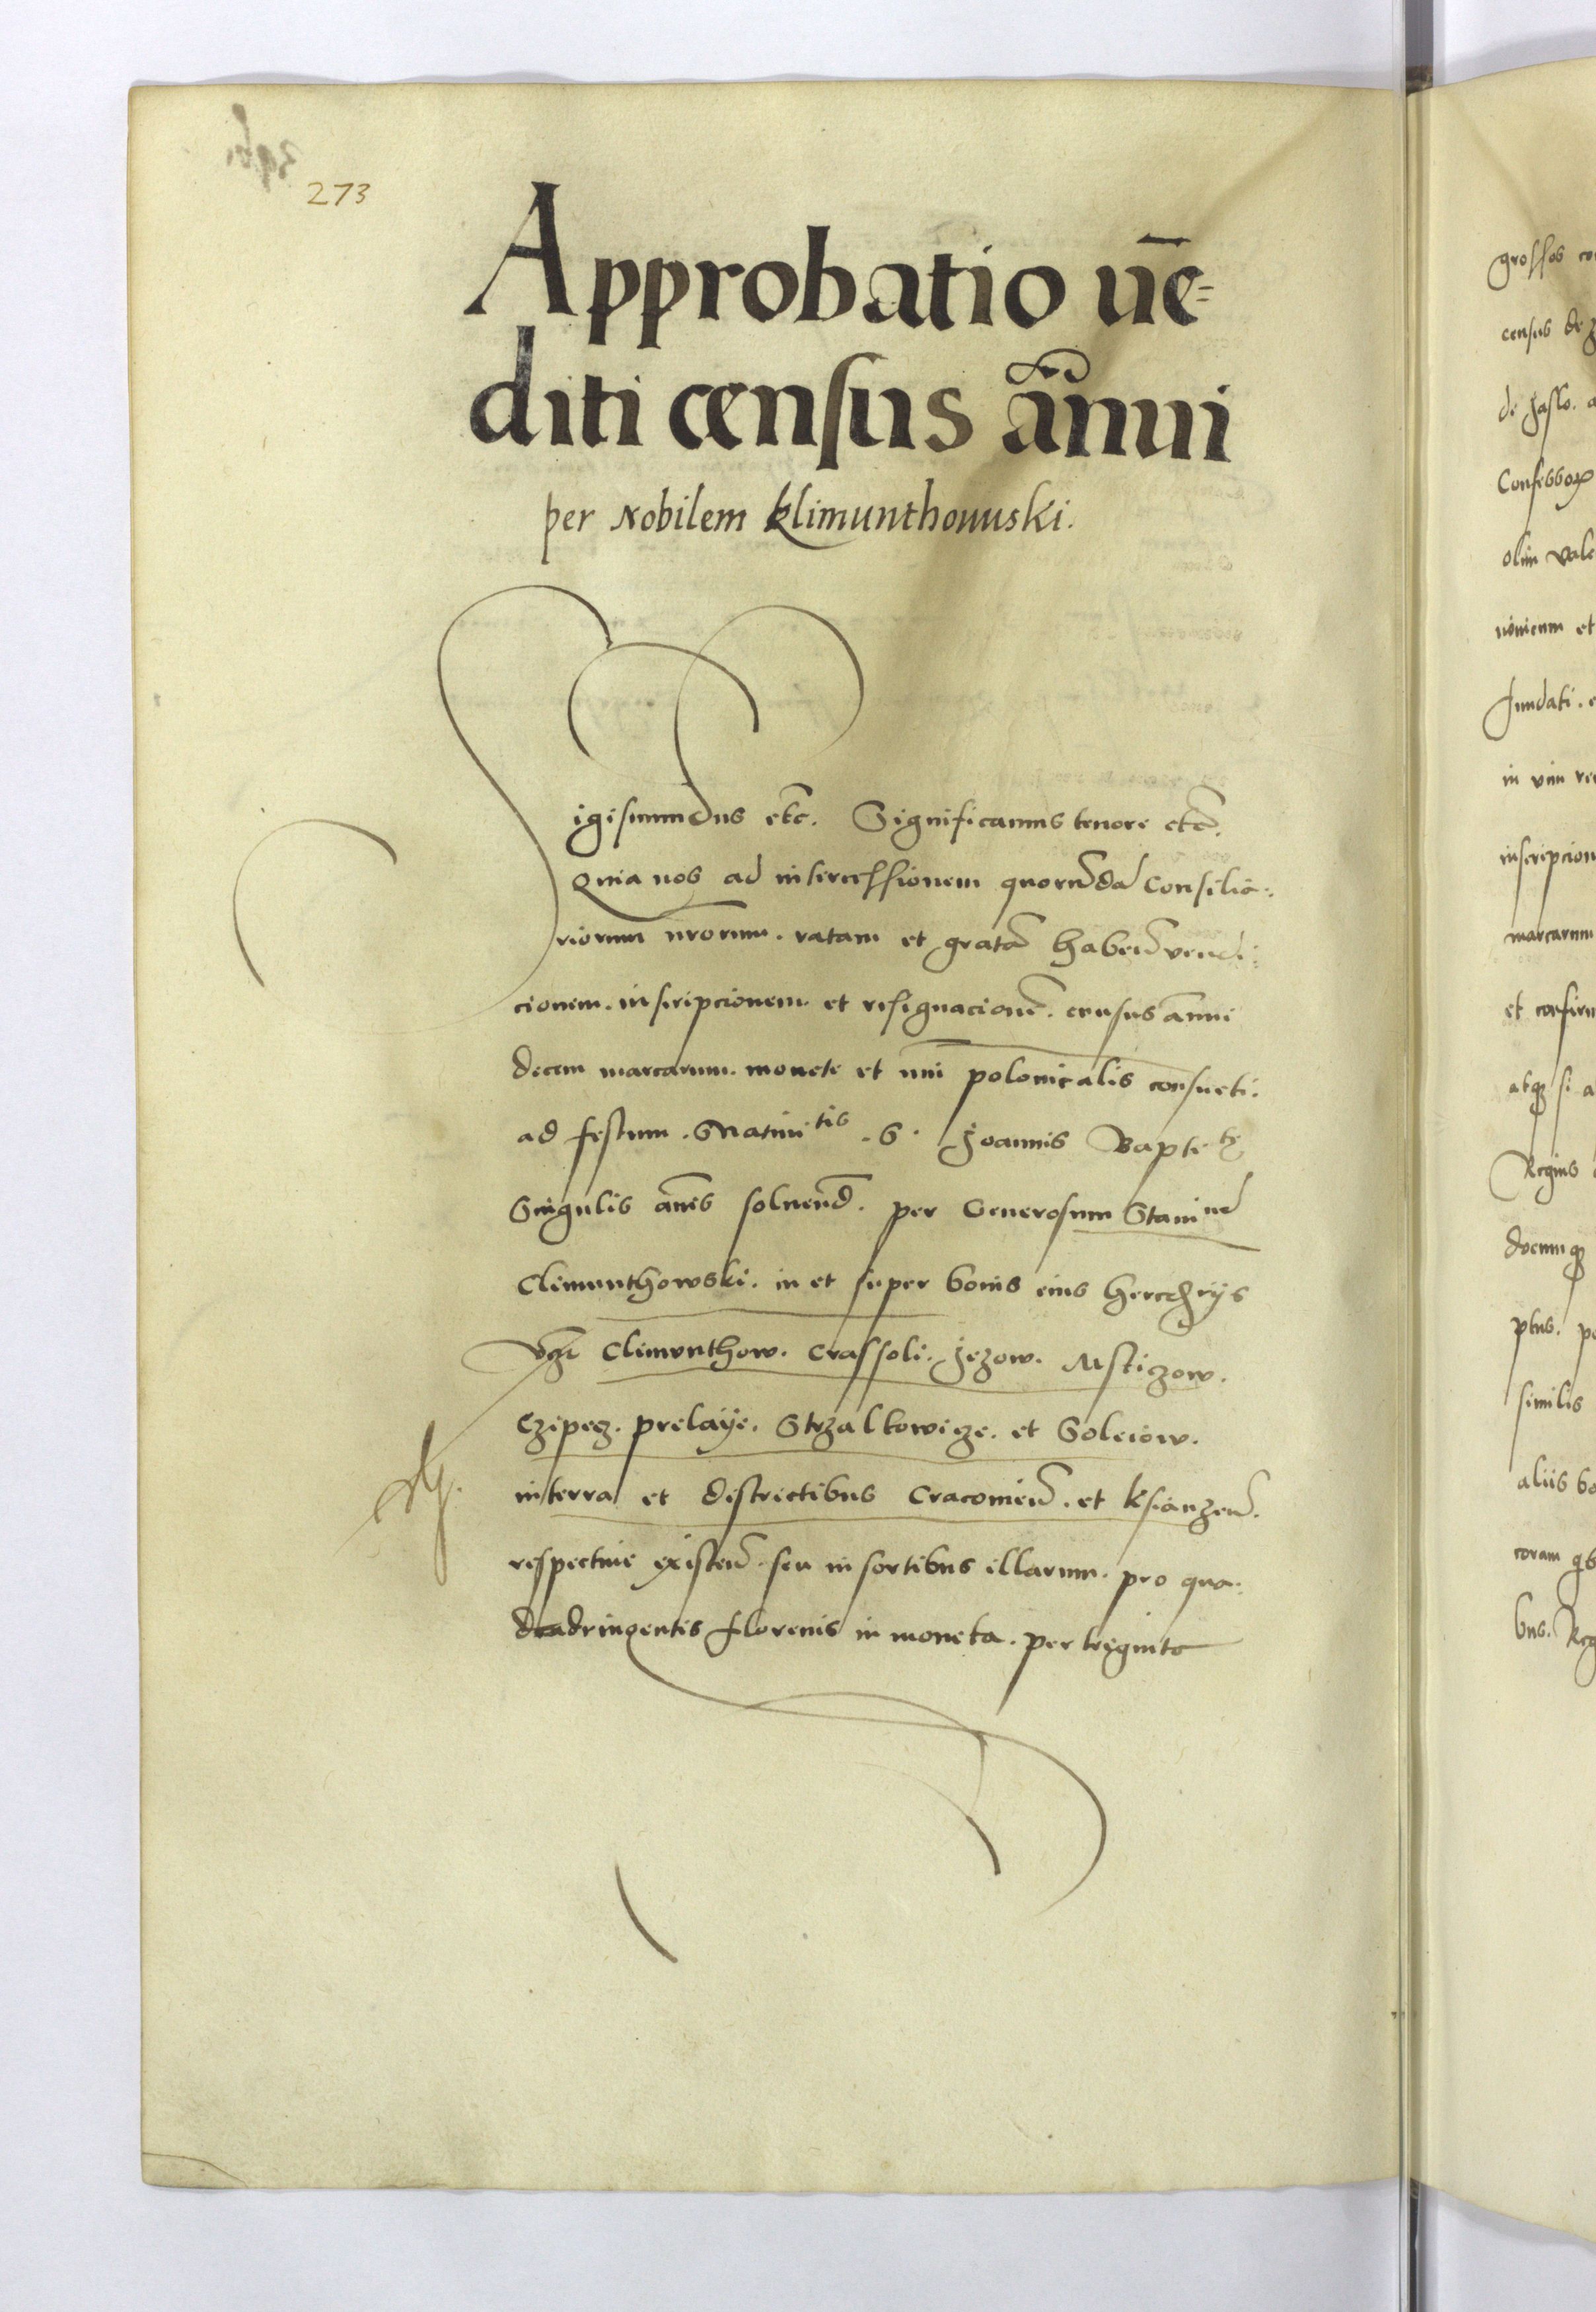 273
Approbatio ūe=
diti census añui
per Nobilem Klimunthouuski.
Sigismundus etc̃. Significamus tenore etc̃.
Quia nos ad intercessionem quorũdã Consilia=
riorum nr̃orum. ratam et gratã habeñ vendi=
cionem. inscripcionem et resignacionẽ. census anñui
decem marcarum. monete et nr̃i polonicalis consueti.
ad festum. Natiuitis. S. Joannis Baptete
Singulis añis soluend̃. per Generosum Stanium
Clemunthowski. in et super bonis eius herednijs
vcz̃ Climunthow. Crassoli. Jezow. Msticzow.
Czepecz. prelaije. Strzalkowicze. et Goleiow.
in terra et districtibus Cracouieñ. et ksianzeñ.
respectiue existeñ. seu in sortibus illarum. pro qua=
dradringentis florenis in moneta. per triginta
grossos
census de
de Jaslo.
Confessor
olim
et
fundati.
in
inscripcion
marcarum
et confirm
atq̃ si a
Regius
docum
similis
aliis bo
coram